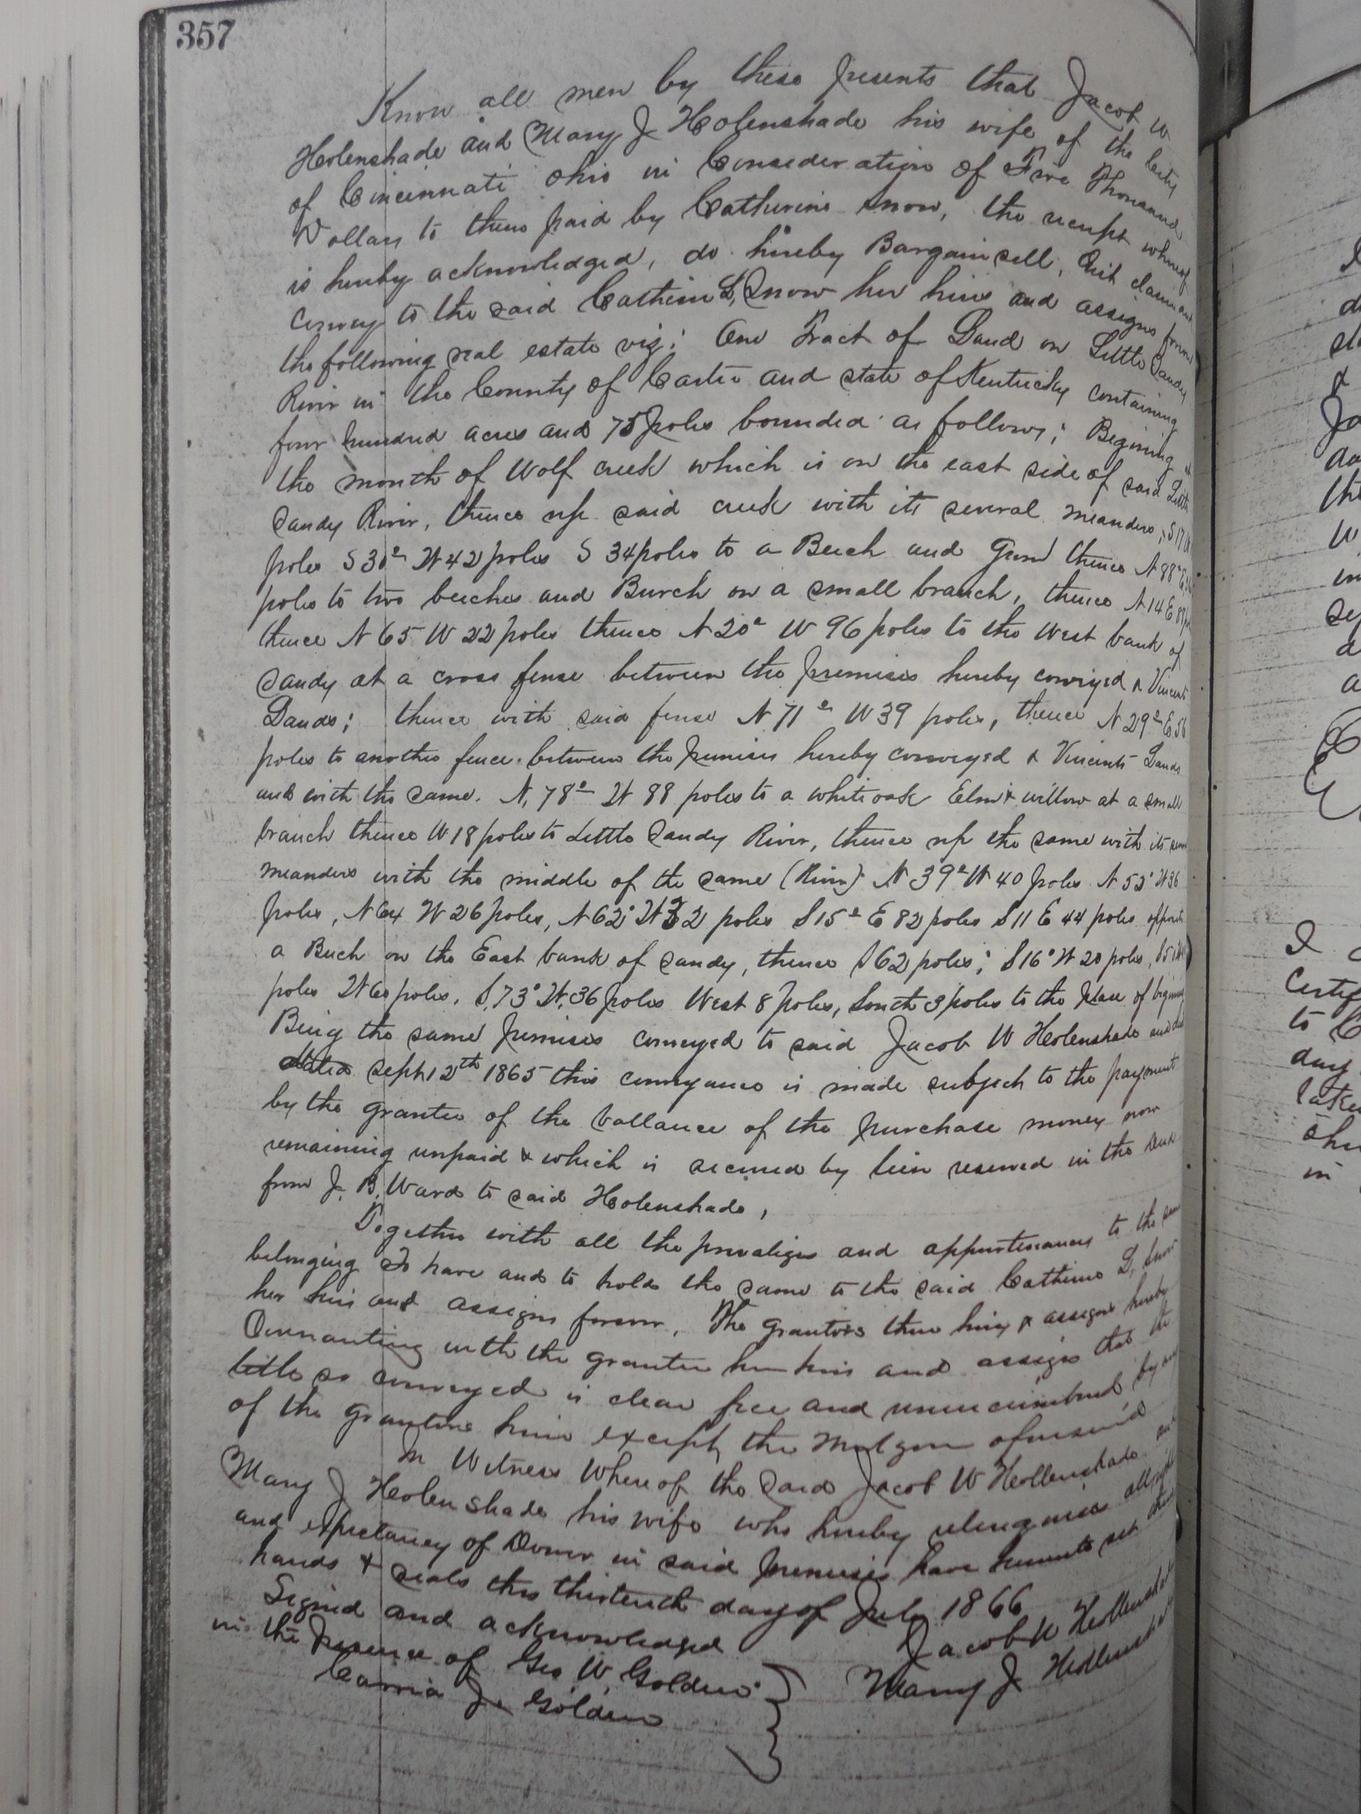 357
Know all men by these presents that Jacob W
Holenshade and Mary J Holenshade his wife of the City
of Cincinnati Ohio in Consideration of Five Thousand
Dollars to them paid by Catherine Snow, the receipt whereof
is hereby acknowledged, do hereby Bargain sell, Quit claim and
convey to the said Catherine L, Snow her heirs and assigns forever
the following real estate viz; One Tract of Land on Little Sandy
River in the County of Carter and state of Kentucky containing
four hundred acres and 75 poles bounded as follows; Begining at
the mouth of Wolf creek which is on the east side of said Little
Sandy River, thence up said creek with its several meanders, S 17 W
poles S 30° W 42 poles S 34 poles to a Beech and Gum thence N 88° E
poles to two beeches and Burch on a small branch, thence N 14 E 87 po
thence N 65 W 22 poles thence N 20° W 96 poles to the West bank of
Sandy at a cross fense between the premises hereby conveyed & Vincents
Lands; thence with said fense N 71° W 39 poles, thence N 29° E 56
poles to another fence between the premises hereby conveyed & Vincents Lands
and with the same. N, 78° W 88 poles to a white oak Elm & willow at a small
branch thence W 18 poles to Little Sandy River, thence up the same with its
meanders with the middle of the same (River) N 39° W 40 poles N 52° W 36
poles, N 64 W 26 poles, N 62° W 32 poles S 15° E 82 poles S 11 E 44 poles opposite
a Buch on the East bank of Sandy, thence S 62 poles; S 16° W 20 poles,
poles W 60 poles, S, 73° W, 36 poles West 8 poles, South 3 poles to the place of begining
Being the same premises conveyed to said Jacob W Holenshade
dated Sept 12th 1865 this conveyance is made subject to the payment
by the grantee of the ballance of the purchase money now
remaining unpaid & which is secured by lien reserved in the deed
from J. B, Ward to said Holenshade,
Together with all the privaliges and appurtenances to the same
belonging To have and to hold the same to the said Catherine L, Snow
her heirs and assigns forever, The grantors their heirs & assigns hereby
Covenanting with the grantee her heirs and assigns that the
title so conveyed is clear free and unincumbred by any
of the grantors heirs except, the Motgage aforesaid
In Witness Whereof the said Jacob W Hollenshade and
Mary J Holenshade his wife who hereby relinquises all right
and expectancy of Dower in said premises have hereunto set their
hands & seals this thirteenth day of July 1866
Signed and acknowledged
in the Presence of Geo W, Golden
Carria J. Golden
Jacob W Hollenshade
Mary J Hollenshade